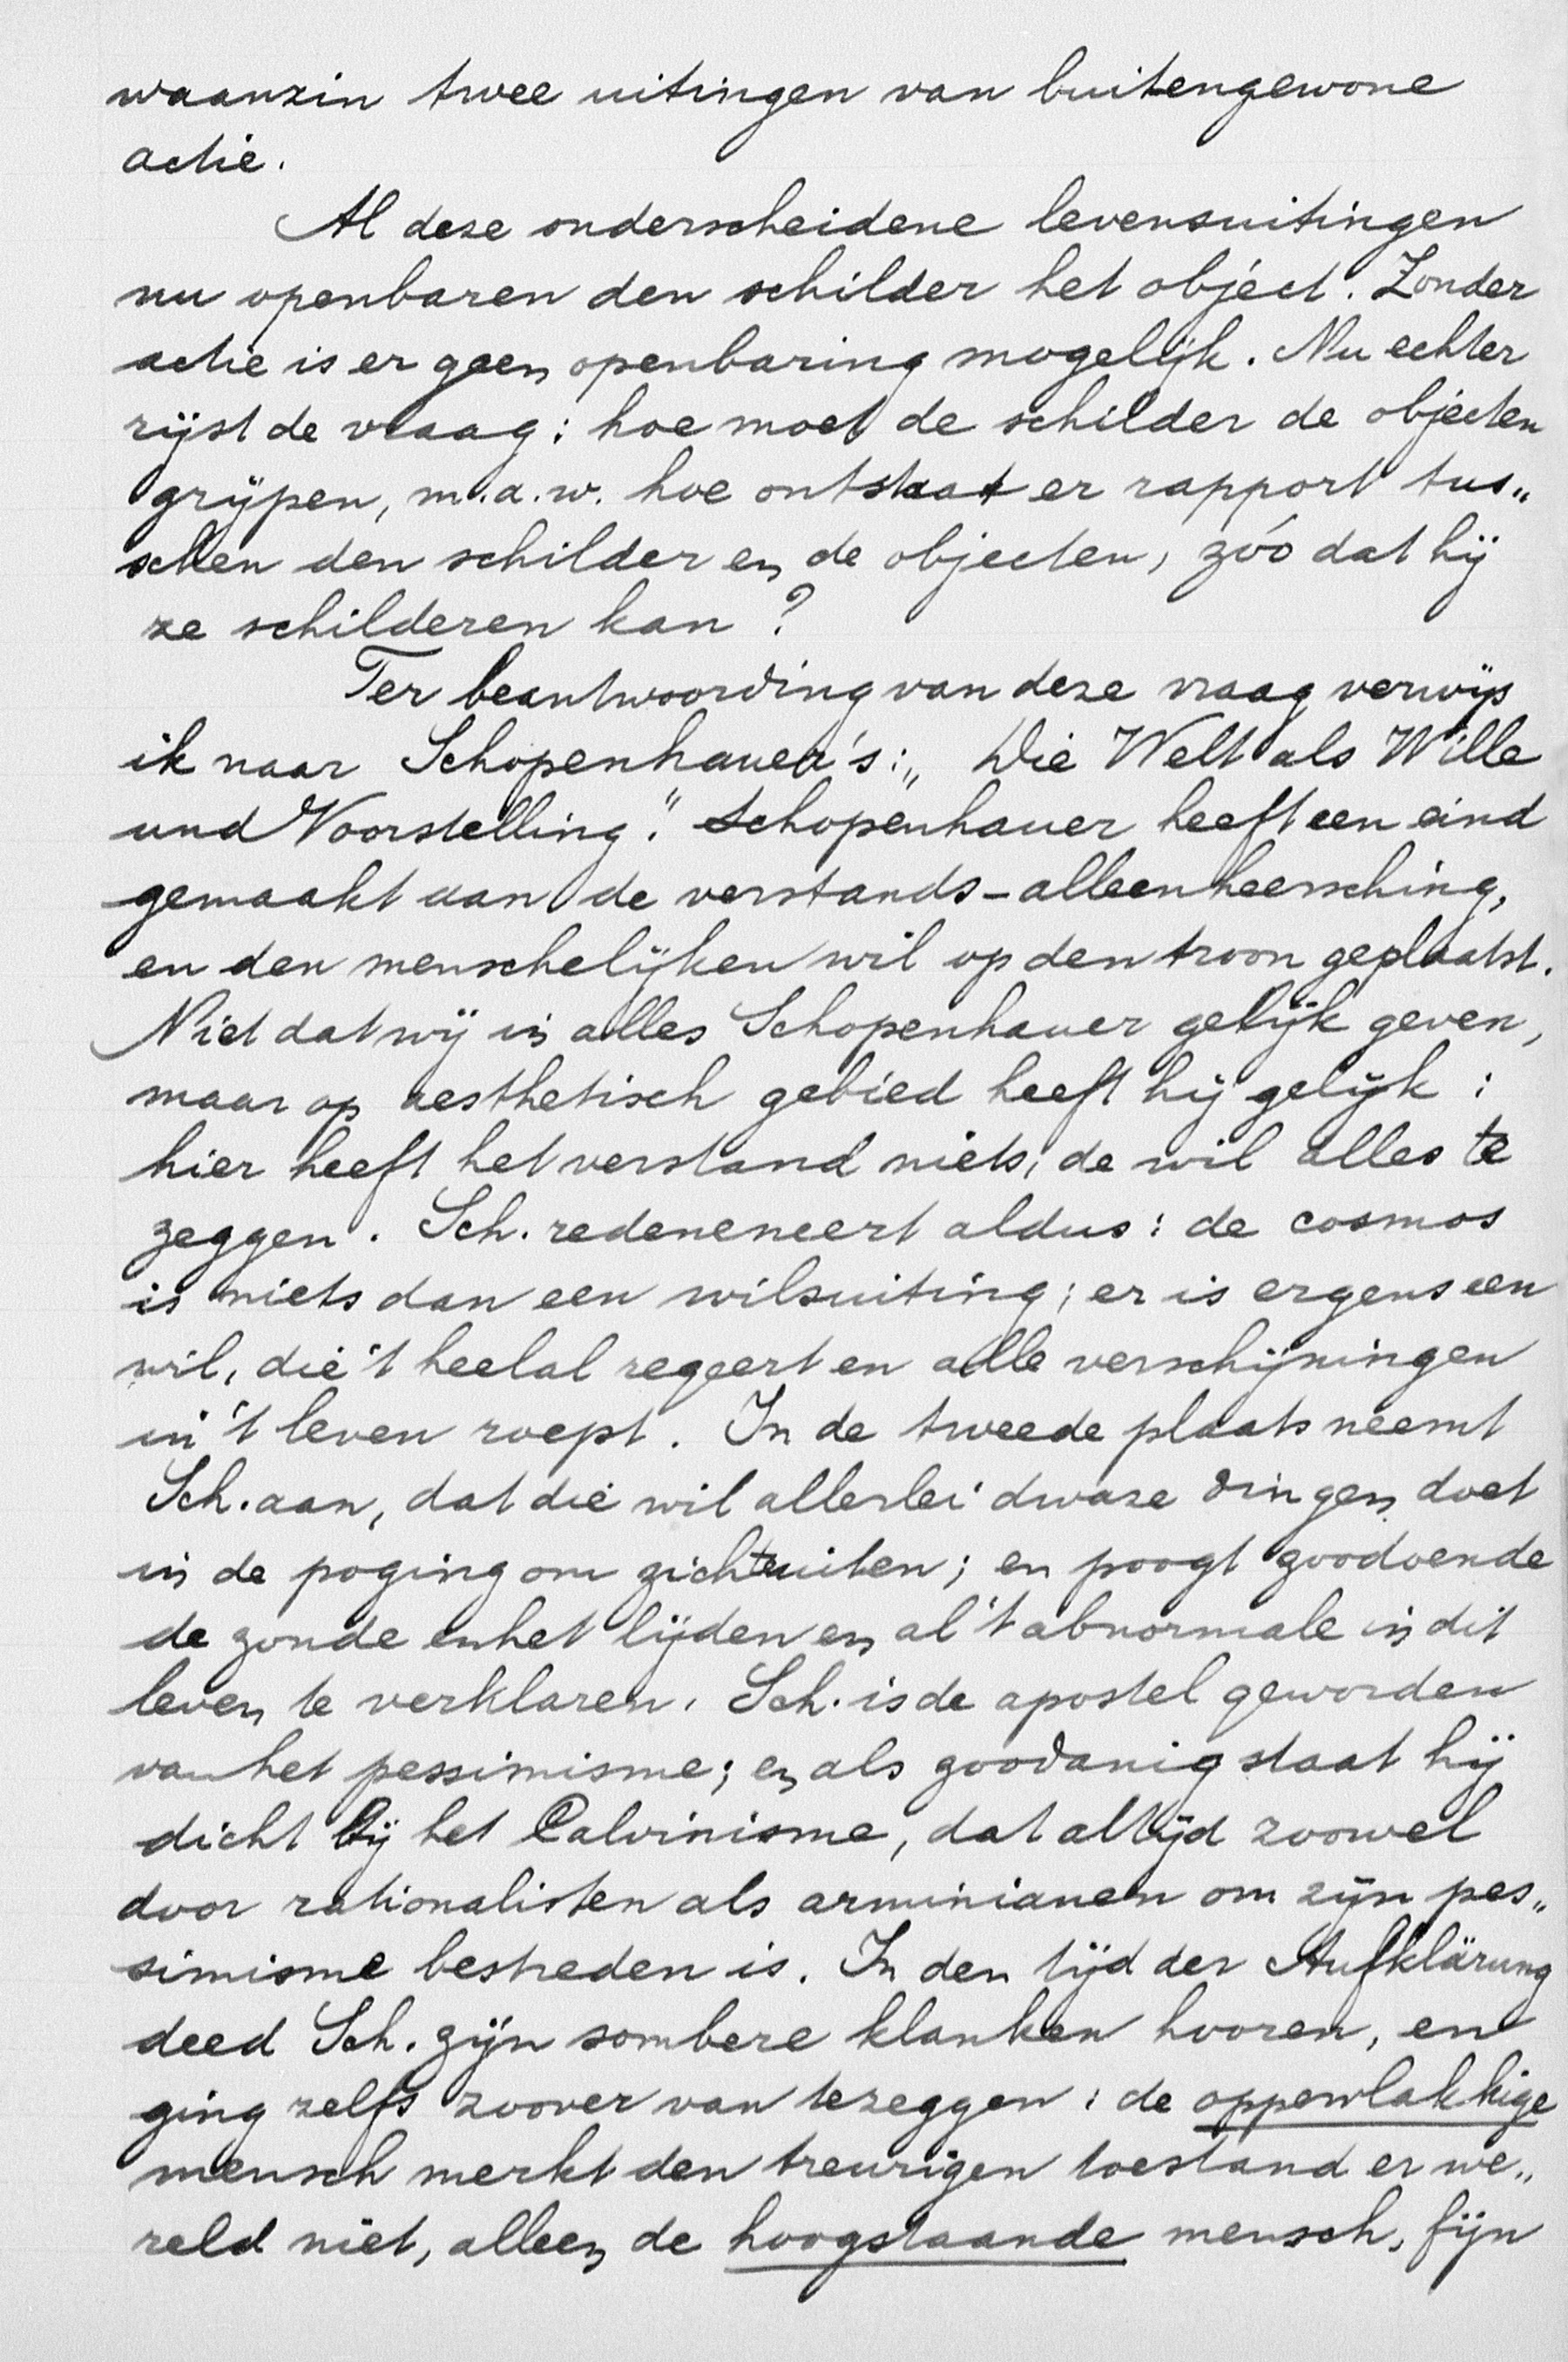 waanzin twee uitingen van buitengewone
actie.
Al deze onderscheidene levensuitingen
nu openbaren den schilder het object. Zonder
actie is er geen openbaring mogelijk. Nu echter
rijst de vraag: hoe moet de schilder de objecten
grijpen, m.a.w. hoe ontstaat er rapport tus„
schen den schilder en de objecten, zóó dat hij
ze schilderen kan?
Ter beantwoording van deze vraag verwijs
ik naar Schopenhauer's: „Die Welt als Wille
und Voorstelling." Schopenhauer heeft een eind
gemaakt aan de verstands-alleenheersching,
en den menschelijken wil op den troon geplaatst.
Niet dat wij in alles Schopenhauer gelijk geven,
maar op aesthetisch gebied heeft hij gelijk:
hier heeft het verstand niets, de wil alles te
zeggen. Sch. redeneneert aldus: de cosmos
is niets dan een wilsuiting; er is ergens een
wil, die 't heelal regeert en alle verschijningen
in 't leven roept. In de tweede plaats neemt
Sch. aan, dat die wil allerlei dwaze dingen doet
in de poging om zich te uiten; en poogt zoodoende
de zonde en het lijden en al 't abnormale in dit
leven te verklaren. Sch. is de apostel geworden
van het pessimisme; en als zoodanig staat hij
dicht bij het Calvinisme, dat altijd zoowel
door rationalisten als arminianen om zijn pes„
simisme bestreden is. In den tijd der Aufklärung
deed Sch. zijn sombere klanken hooren, en
ging zelfs zoover van te zeggen: de oppervlakkige
mensch merkt den treurigen toestand er we„
reld niet, alleen de hoogstaande mensch, fijn